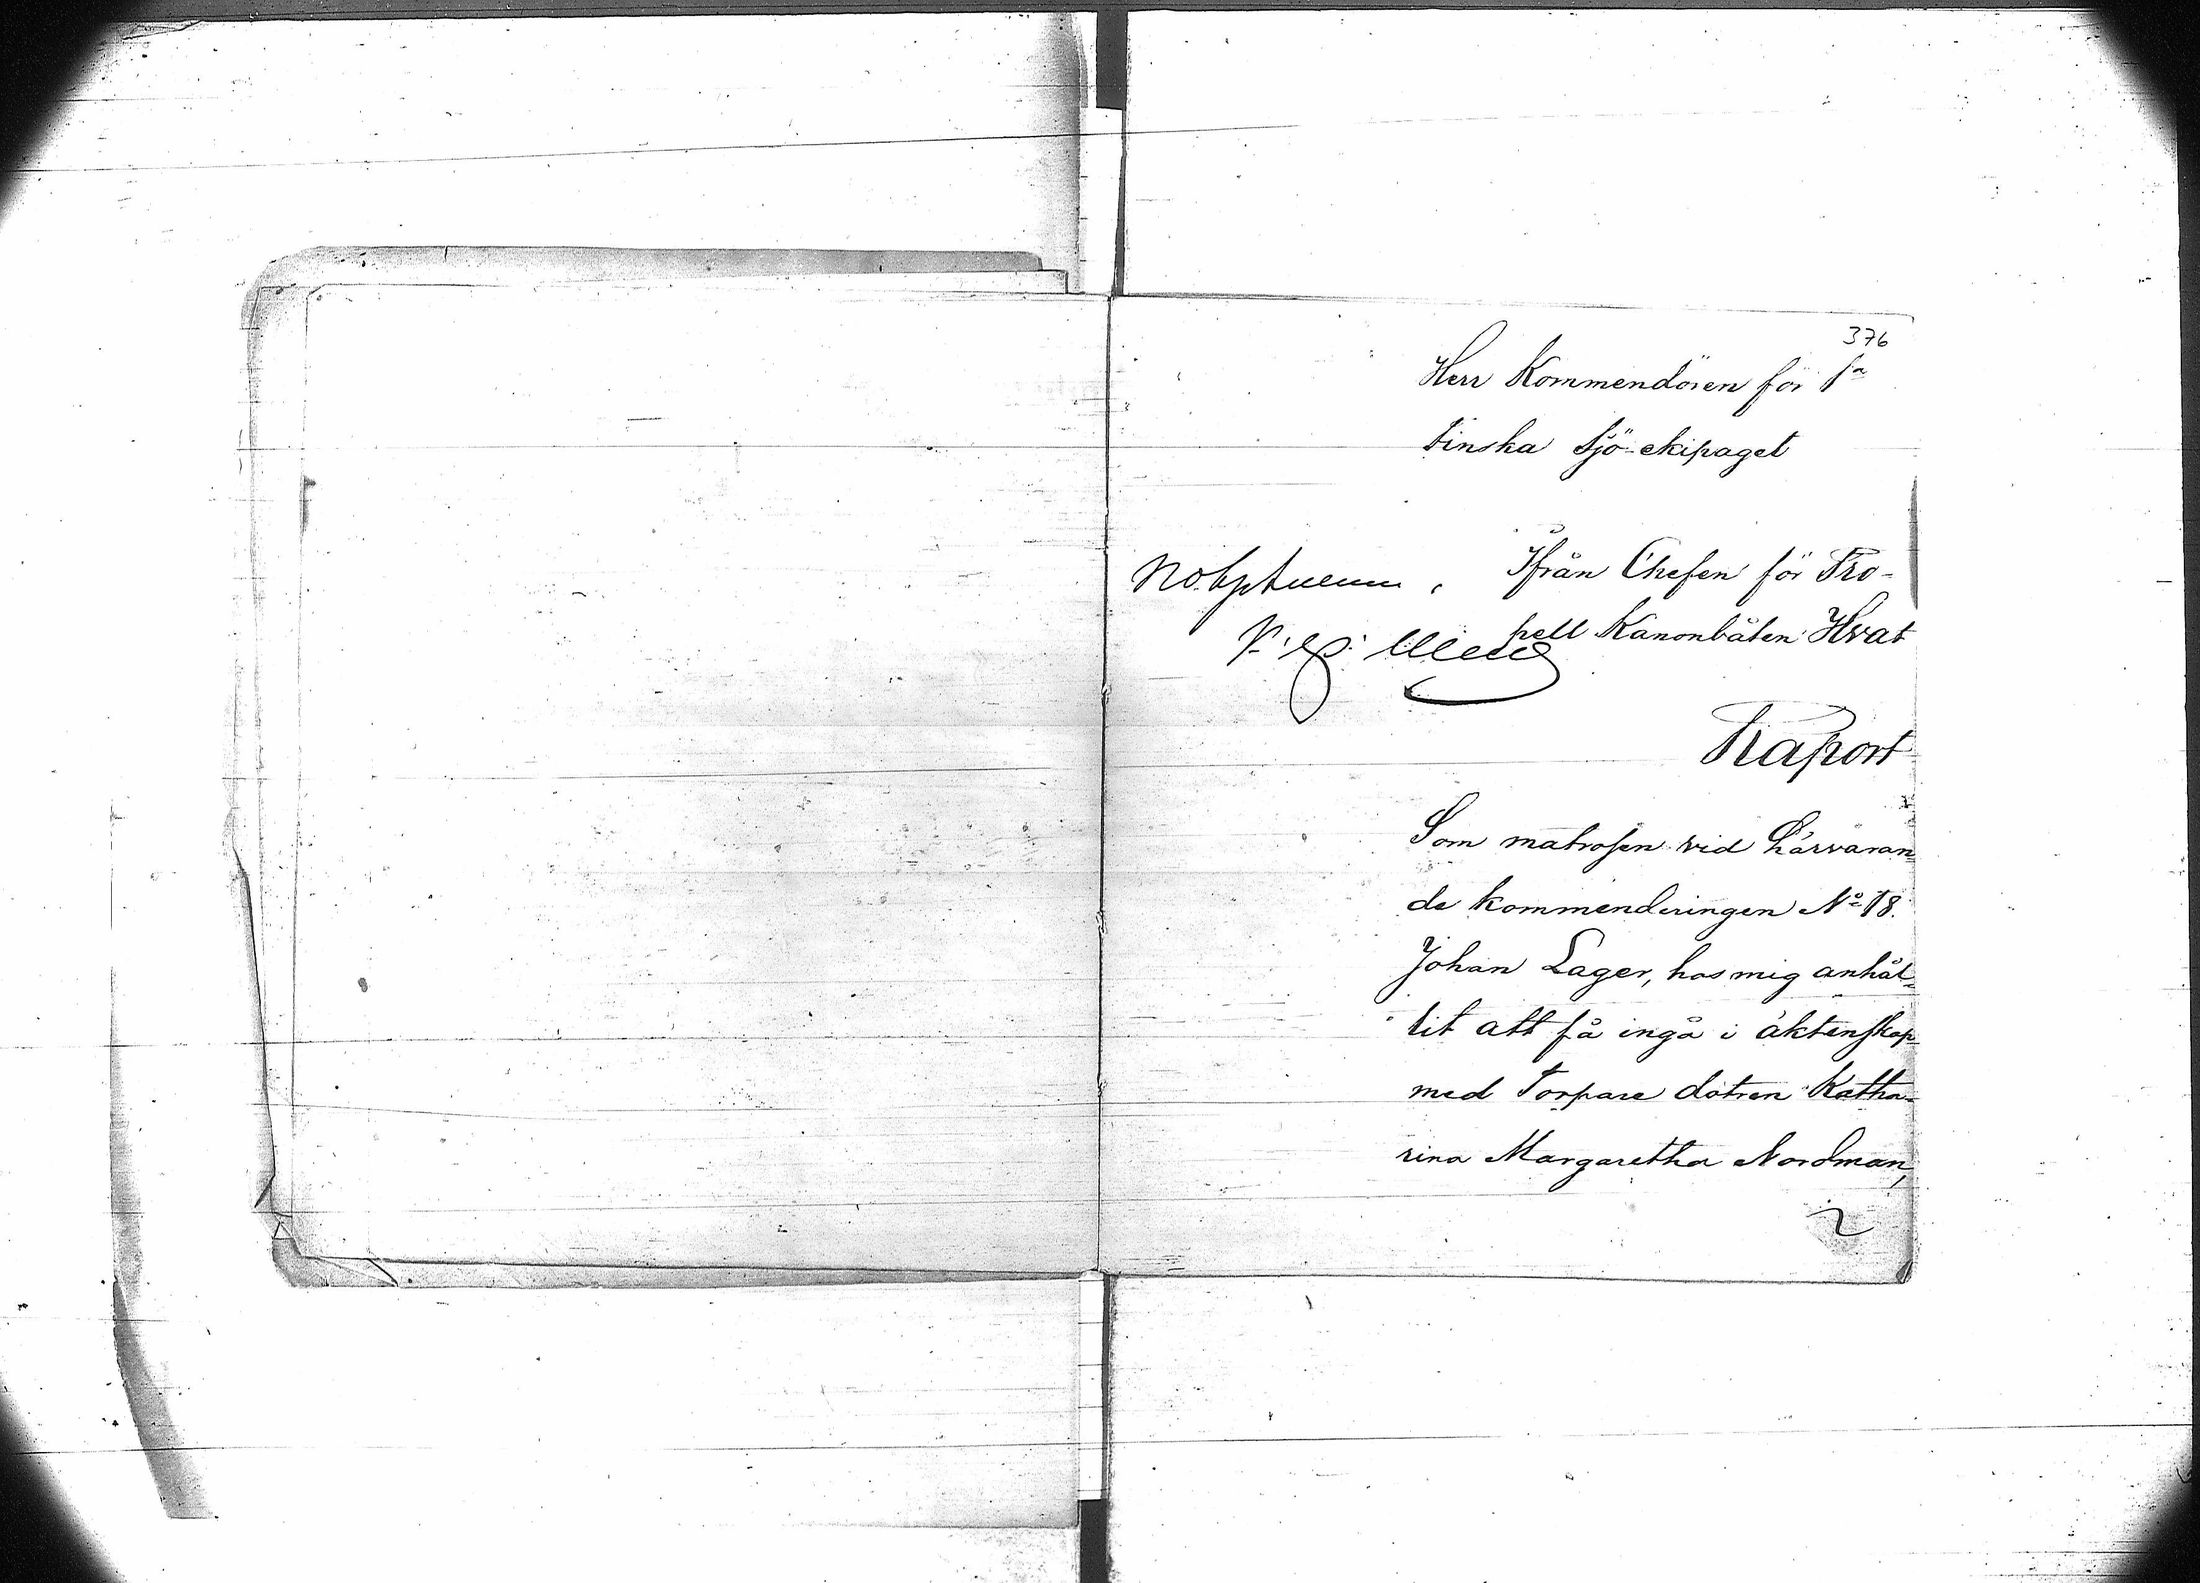 376
Herr Kommendören för 1a
finska Sjö-ekipaget
Ifrån Chefen för Pro-
pell Kanonbåten Hvat
Raport
Som matrosen vid härvaran
de kommenderingen No 18.
Johan Lager, hos mig anhål-
lit att få ingå i äktenskap
med Torpare dotren Katha-
rina Margaretha Nordman,
2